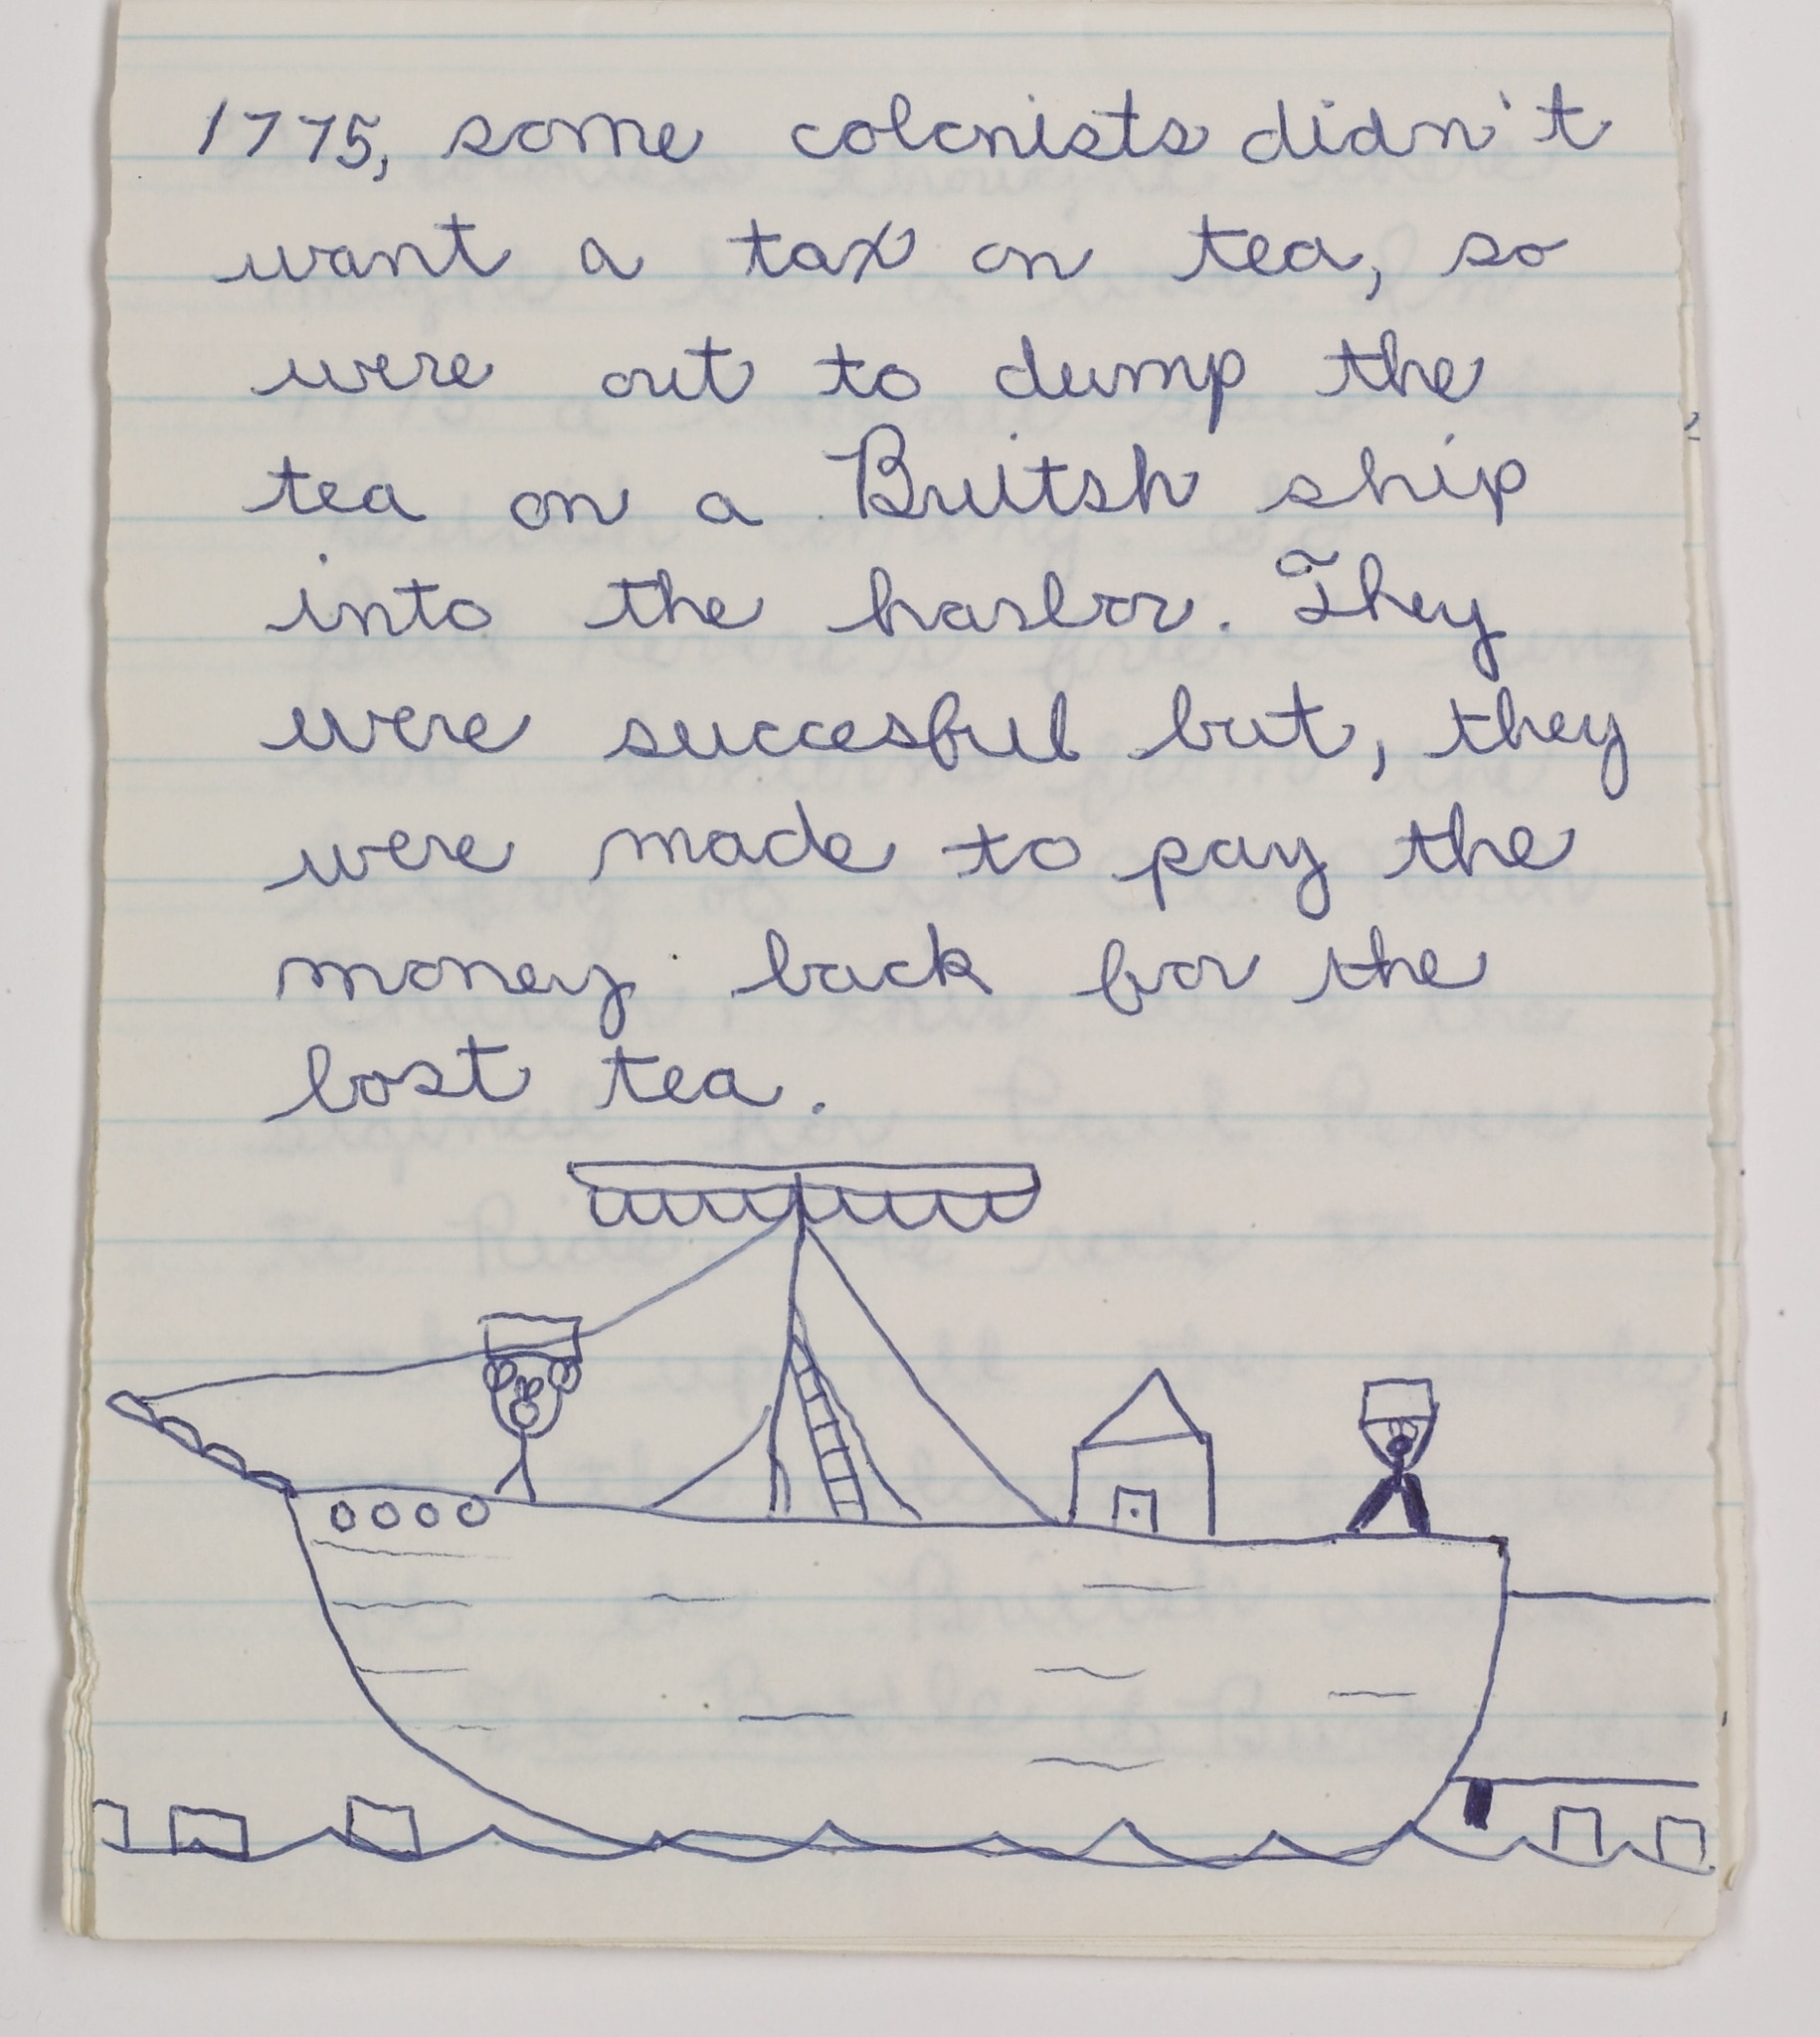 1775, some colonists didn't
want a tax on tea, so
were out to dump the
tea on a Britsh ship
into the harbor. They
were succesful but, they
were made to pay the
money back for the
lost tea.